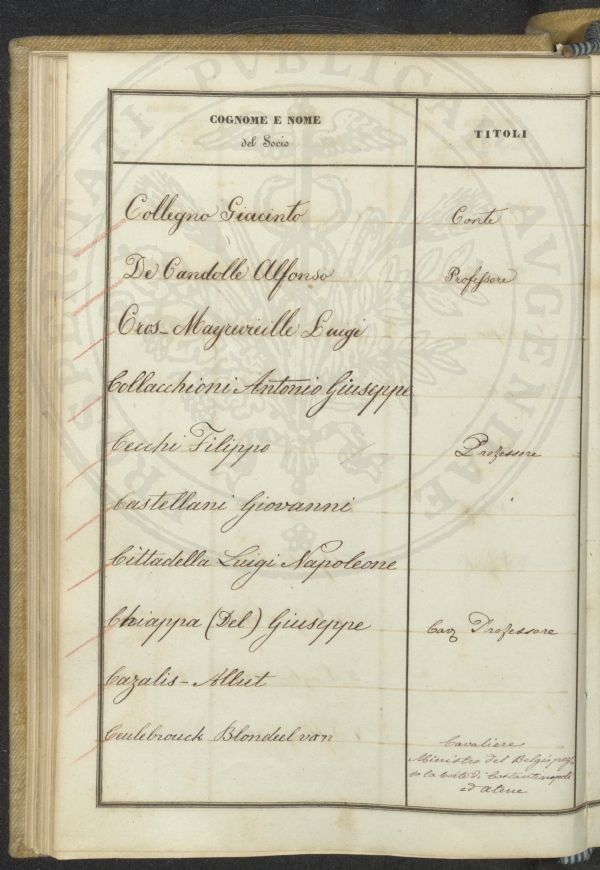 PROSPERITATI PUBLICAE AUGENDAE
COGNOME E NOME
del Socio
TITOLI
Collegno Giacinto Conte
De Candolle Alfonso Professore
Cros-Mayrevieille Luigi
Collacchioni Antonio Giuseppe
Cecchi Filippo Professore
Castellani Giovanni
Cittadella Luigi Napoleone
Chiappa (Del) Giuseppe Cav Professore
Cazalis-Allut
Ceulebrouck Blondeel van Cavaliere
Ministro del Belgio
la Corte di Costantinopoli
ed Atene